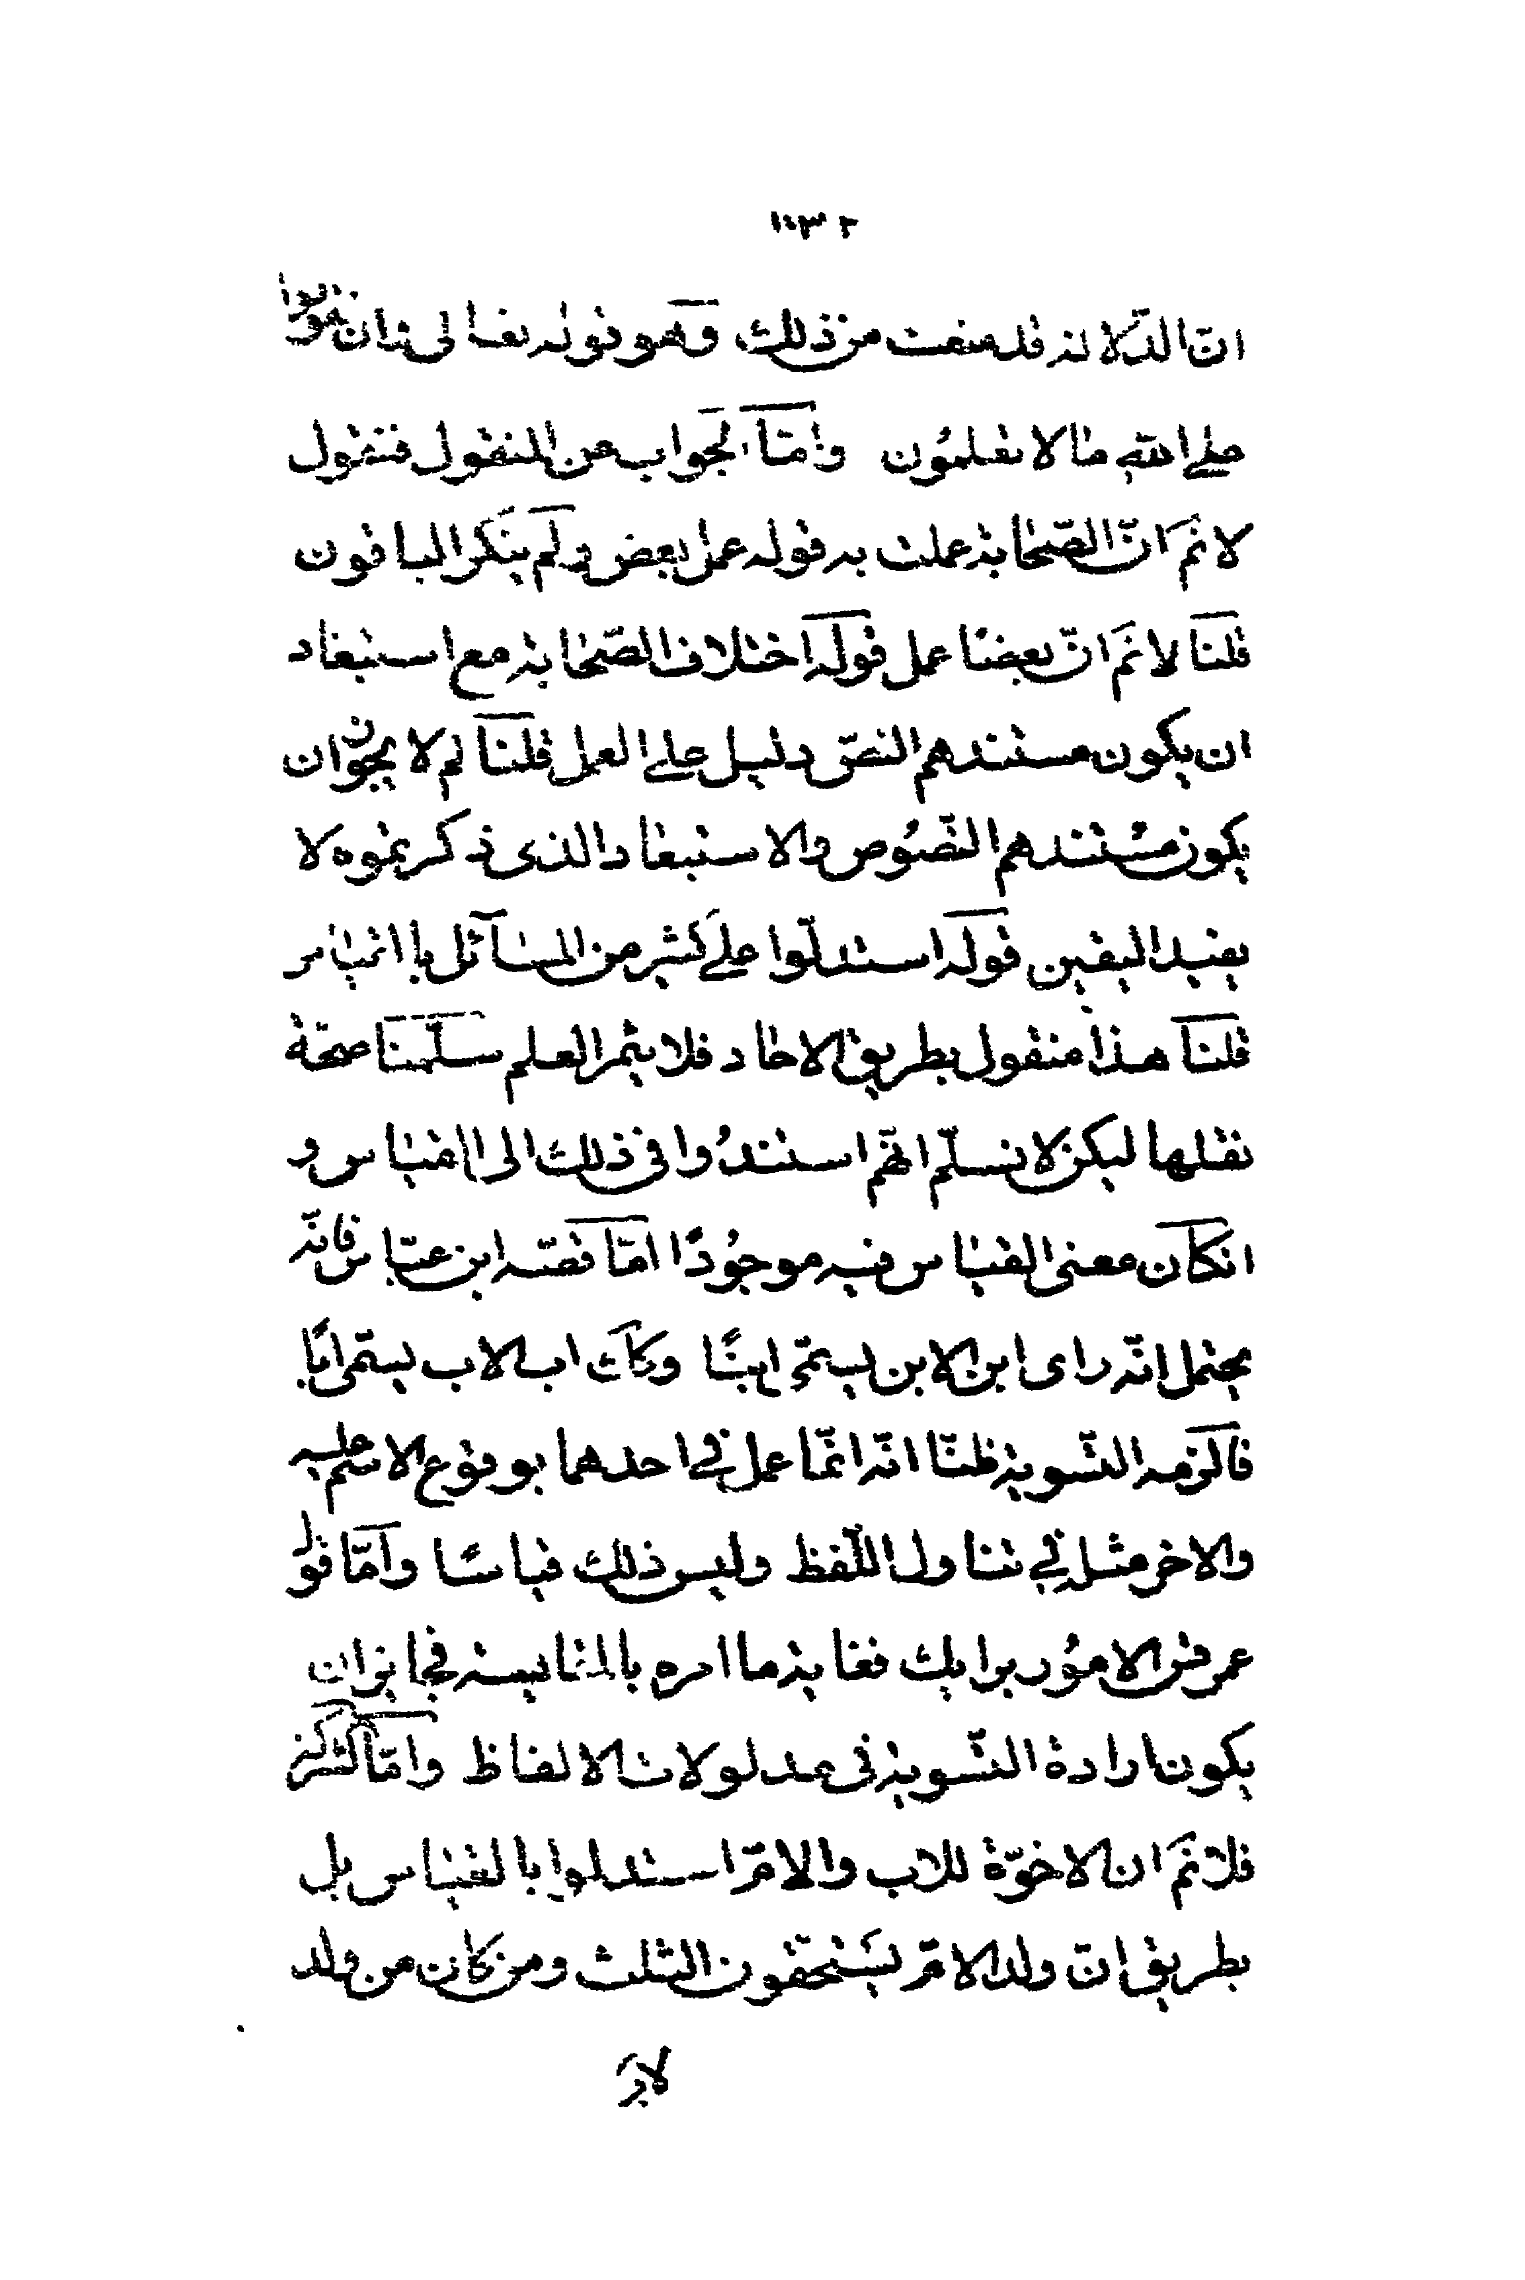 انّ الدّلالة قد منعت من ذلك وهو قوله تعالى وان تقولوا
على الله ما لا تعلمون وامّا الجواب عن المنقول فنقول
لا نمَ انّ الصّحابة عملت به قوله عمل بعض ولم ينكر الباقون
قلنا لا نمَ انّ بعضًا عمل قوله اختلاف الصّحابة مع استبعاد
ان يكون مستندهم النصّ دليل على العمل قلنا لم لا يجوز ان
يكون مستندهم النّصوص والاستبعاد الذى ذكرتموه لا
يفيد اليقين قوله استدلّوا على كثير من المسآئل بالقياس
قلنا هذا منقول بطريق الاحاد فلا يثمر العلم سلّمنا صحّة
نقلها ليكن لا نسلّم انّهم استندُوا فى ذلك الى القياس و
ان كان معنى القياس فيه موجُودًا امّا قصّة ابن عبّاس فانّه
يحتمل انّه راى ابن الابن ليسمّى ابنًا وكان اب الاب يسمّى ابًا
فالزمه التّسوية ظنّا انّه انّما عمل فى احدهما بوقوع الاسم عليه
والاخر مثله فى تناول اللّفظ وليس ذلك قياسًا وامّا قول
عمر قس الامُور برايك فغاية ما امره بالمقايسة فجايز ان
يكون ارادة التّسوية فى مدلولات الالفاظ وامّا التشريك
فلا نمَ ان الاخوّة للاب والامّ استدلوا بالقياس بل
بطريق انّ ولد الامّ يستحقّون الثلث ومن كان من ولد